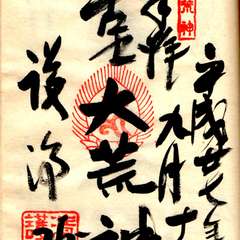 平成廿七年
九月十
荒神
奉拝
大荒神
護浄院